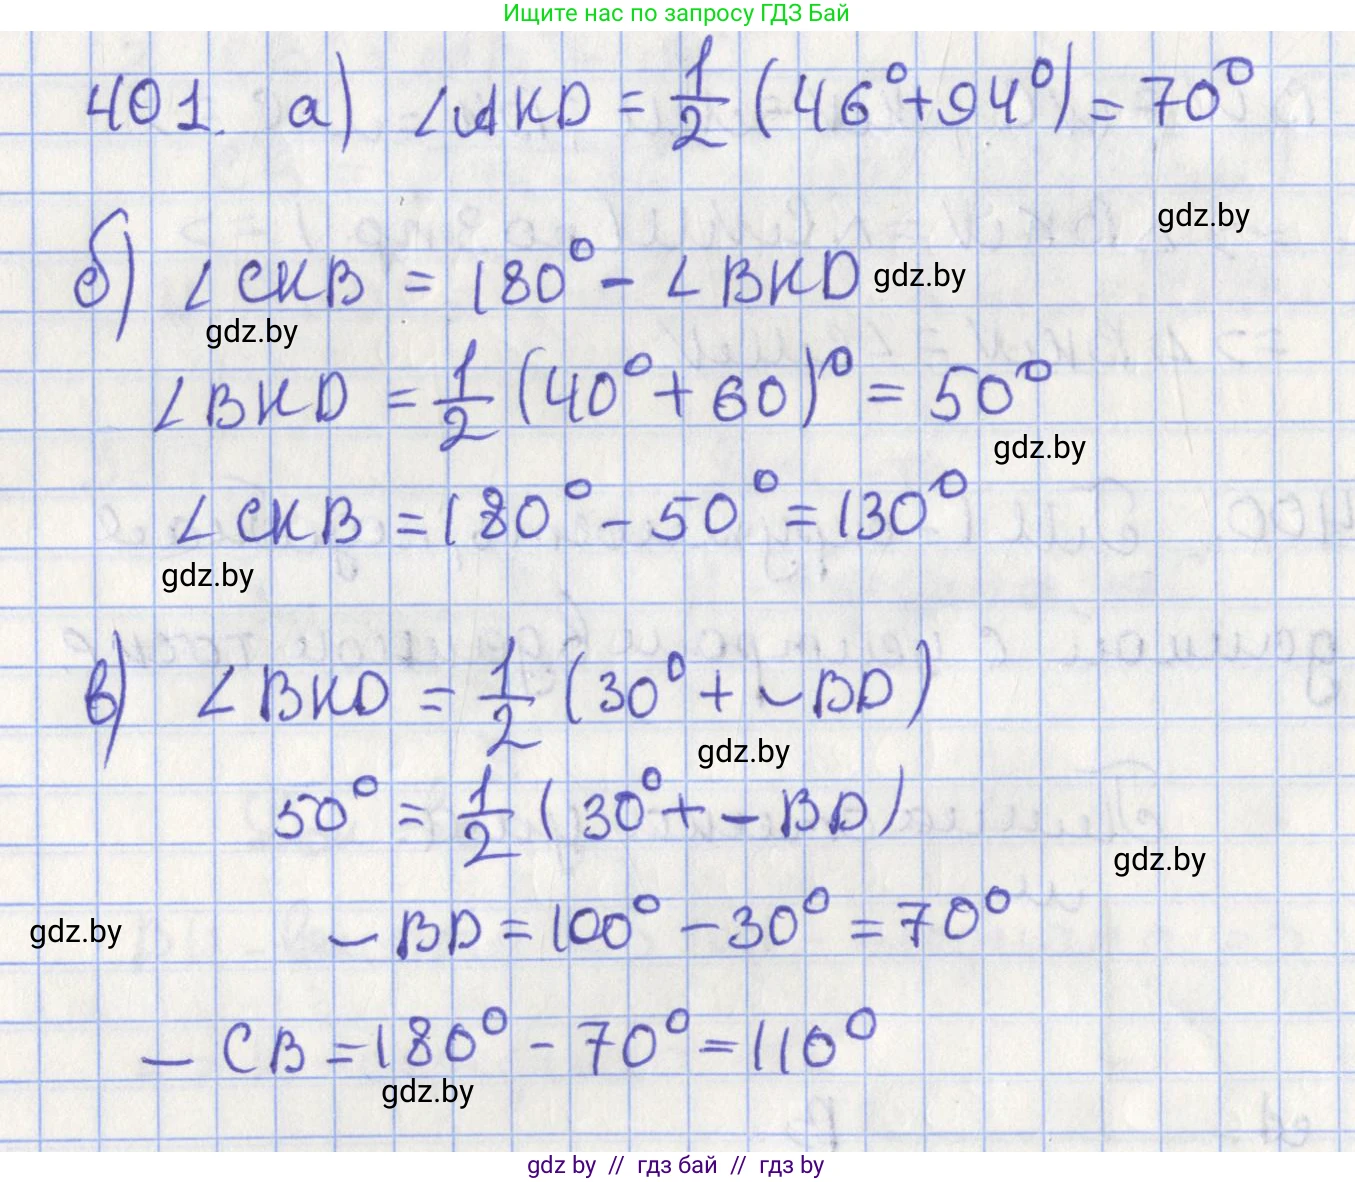 Ищите нас по запросу ГДЗ Бай
401. а) ∠AKD = 1/2 (46° + 94°) = 70°
gdz.by
б) ∠CKB = 180° - ∠BKD gdz.by
gdz.by
∠BKD = 1/2 (40° + 60)° = 50°
gdz.by
∠CKB = 180° - 50° = 130°
gdz.by
в) ∠BKD = 1/2 (30° + ◡BD)
gdz.by
50° = 1/2 (30° + ◡BD)
gdz.by
gdz.by ◡BD = 100° - 30° = 70°
◡CB = 180° - 70° = 110°
gdz.by
gdz by // гдз бай // гдз by